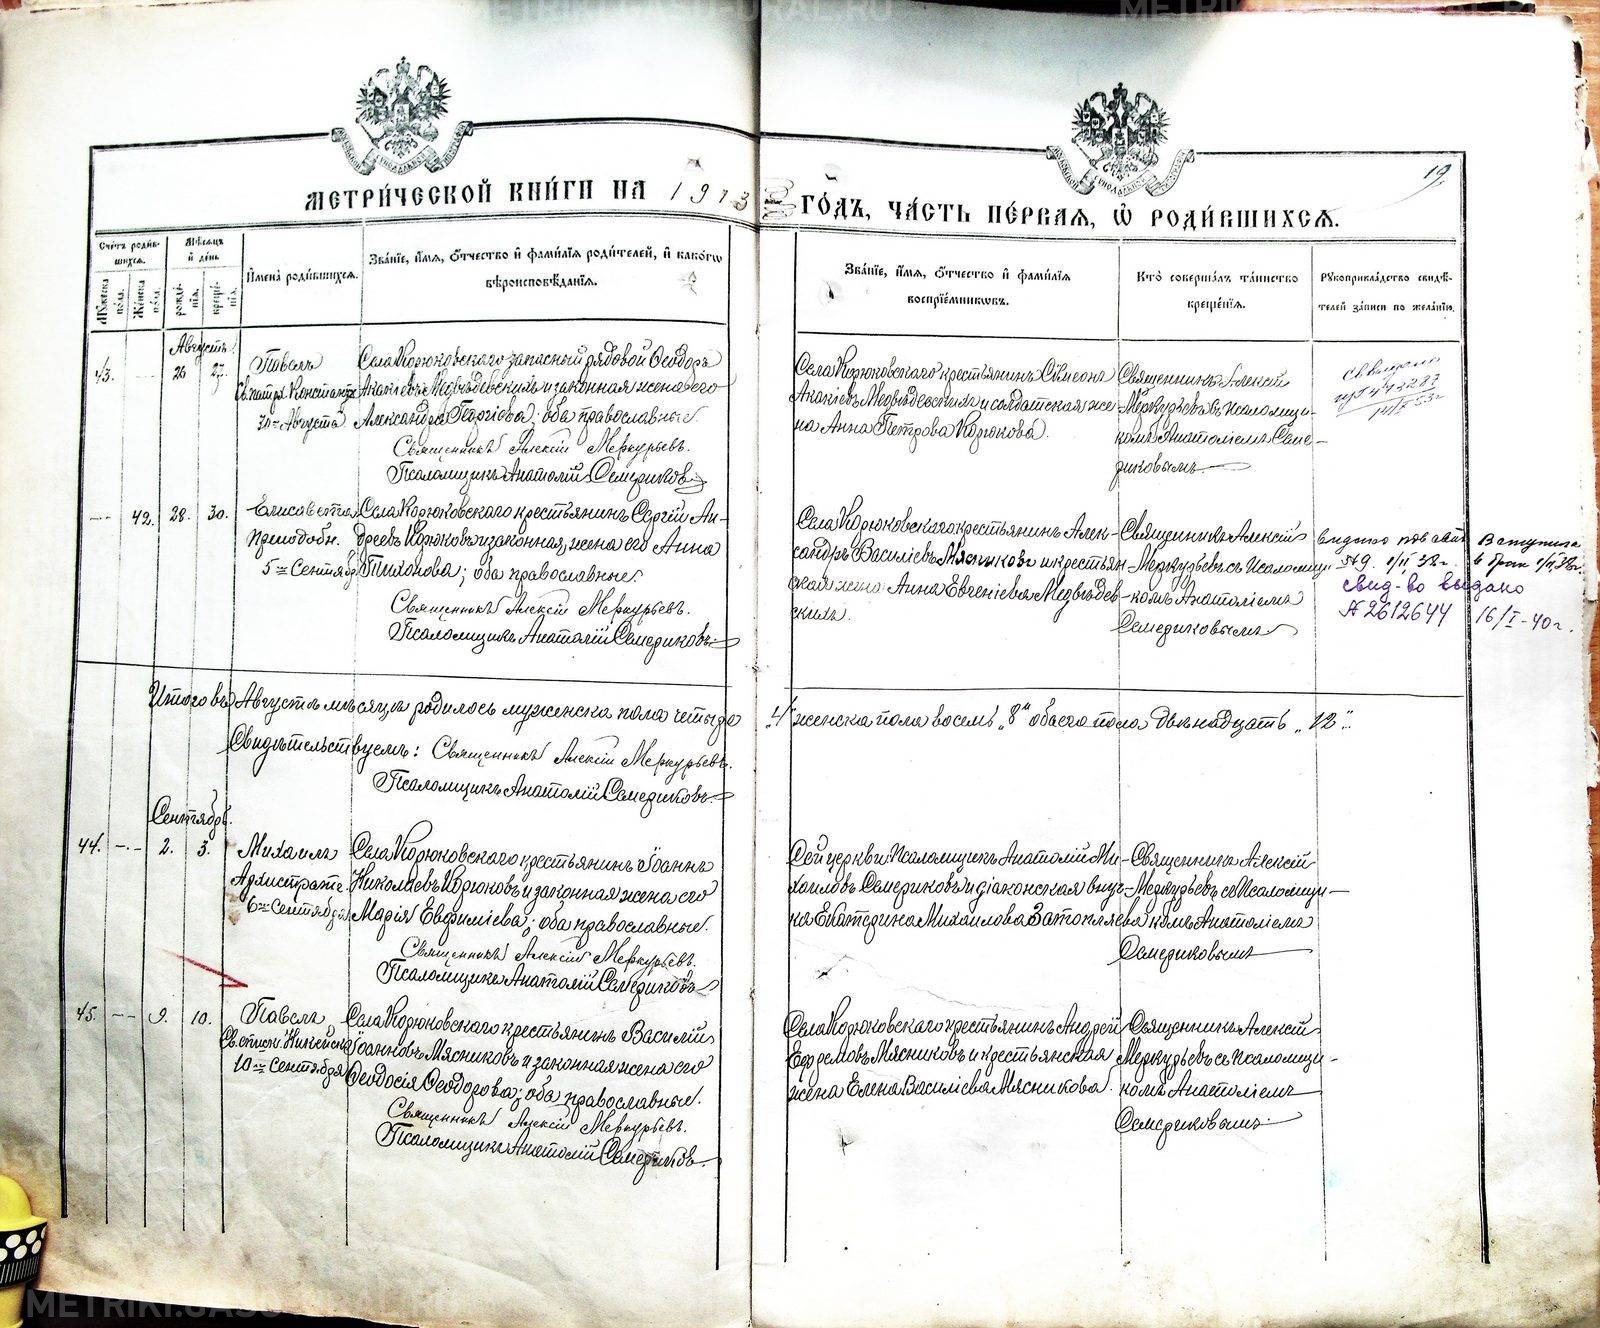 METRIKI.GASO-URAL.RU
METRIKI.GASO-URAL.RU
19.
МЕТРИ́ЧЕСКОЙ КНИ́ГИ НА 1913
ГО́ДЪ, ЧА́СТЬ ПЕ́РВАЯ, Ѡ РОДИ́ВШИХСЯ.
Сче́тъ роди́вшихся.
Му́жеска по́ла.
Же́нска по́ла.
Мѣ́сяцъ и де́нь
рожде́нія.
креще́нія.
И́мена роди́вшихся.
Зва́ніе, и́мя, ѻ́тчество и фами́лія роди́телей, и како́гѡ
вѣроисповѣ́данія.
Зва́ніе, и́мя, ѻ́тчество и фами́лія
воспріе́мникѡвъ.
Кто̀ соверша́лъ та́инство
креще́нія.
Рукоприкла́дство свидѣ́-
телей за́писи по жела́нію.
Августъ.
43. — 26 27.
Павелъ
Св. патр. Константин.
30го Августа
Села Корюковскаго запасный рядовой Ѳеодоръ
Акакіевъ Медвѣдевскихъ и законная жена его
Александра Георгіева; оба православные.
Священникъ Алексій Меркурьевъ.
Псаломщикъ Анатолій Семериковъ
Села Корюковскаго крестьянинъ Симеонъ
Акакіевъ Медвѣдевскихъ и солдатская же-
на Анна Петрова Корюкова.
Священникъ Алексій
Меркурьевъ съ псаломщи-
комъ Анатоліемъ Семе-
риковымъ.
— 42. 28. 30.
Елисавета
Преподобн.
5го Сентября
Села Корюковскаго крестьянинъ Сергій Ан-
дреевъ Корюковъ и законная жена его Анна
Тихонова; оба православные.
Священникъ Алексій Меркурьевъ.
Псаломщикъ Анатолій Семериковъ.
Села Корюковскаго крестьянинъ Алек-
сандръ Василіевъ Мясниковъ и крестьян-
ская жена Анна Евгеніева Медвѣдев-
скихъ.
Священникъ Алексій
Меркурьевъ съ псаломщи-
комъ Анатоліемъ
Семериковымъ
1/II, 38г.
Вступила
в брак 1/II, 38г.
свид-во выдано
№ 2612644 16/I-40г.
Итого въ Августѣ мѣсяцѣ родилось мужеска пола четыре „4“ женска пола восемь „8“ обаего пола двѣнадцать „12“.
Свидѣтельствуемъ: Священникъ Алексій Меркурьевъ.
Псаломщикъ Анатолій Семериковъ.
Сентябрь.
44. — 2. 3.
Михаилъ
Архистрате.
6го Сентября
Села Корюковскаго крестьянинъ Іоаннъ
Николаевъ Корюковъ и законная жена его
Марія Евѳиміева; оба православные.
Священникъ Алексій Меркурьевъ.
Псаломщикъ Анатолій Семериковъ
Сей церкви псаломщикъ Анатолій Ми-
хаиловъ Семериковъ и діаконская внуч-
ка Екатерина Михаилова Затопляева
Священникъ Алексій
Меркурьевъ съ псаломщи-
комъ Анатоліемъ
Семериковымъ
45. — 9. 10.
Павелъ
Св. еписк. Никейск.
10го Сентября
Села Корюковскаго крестьянинъ Василій
Іоанновъ Мясниковъ и законная жена его
Ѳеодосія Ѳеодорова; оба православные.
Священникъ Алексій Меркурьевъ.
Псаломщикъ Анатолій Семериковъ.
Села Корюковскаго крестьянинъ Андрей
Ефремовъ Мясниковъ и крестьянская
жена Елена Василіева Мясникова.
Священникъ Алексій
Меркурьевъ съ псаломщи-
комъ Анатоліемъ
Семериковымъ.
METRIKI.GASO-URAL.RU